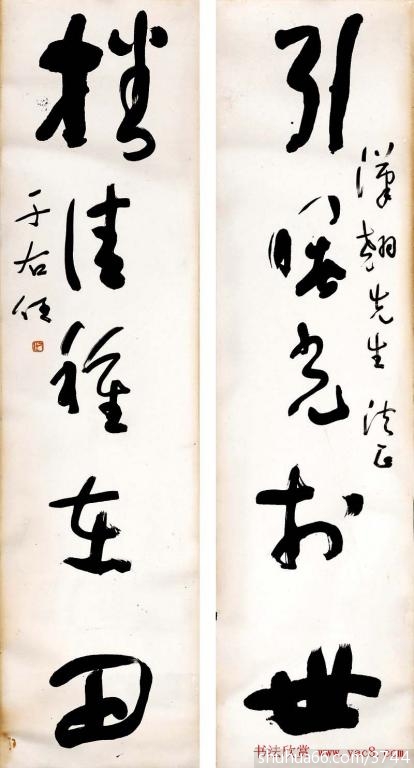 引曙光於世
漢翹先生 法正
播佳種在田
于右任
书法欣赏 www.yac8.com
shuhua66.com/3744